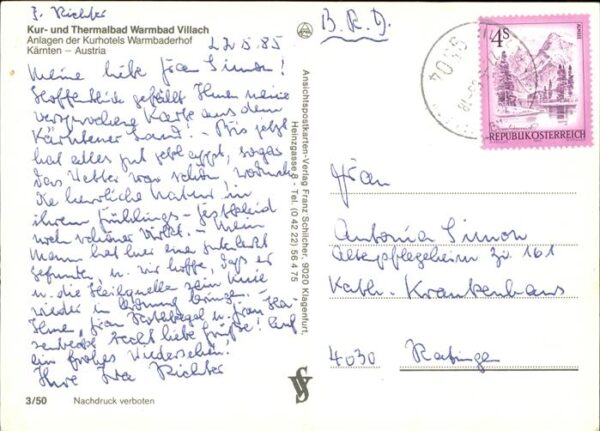 I. Richter
Kur- und Thermalbad Warmbad Villach
Anlagen der Kurhotels Warmbaderhof
Kärnten – Austria
22.5.85
Meine liebe Frau Simon!
Hoffentlich gefällt Ihnen meine
versprochene Karte aus dem
Kärntner Land! – Bis jetzt
hat alles gut geklappt, sogar
das Wetter war schön, wodurch
die herrliche Natur in
ihrem Frühlings-Festkleid
noch schöner wirkt. – Mein
Mann hat hier eine
gefunden, u. wir hoffen, daß er
u. die Heilquelle sein Knie
wieder in Ordnung bringen. –
Ihnen, Frau u. Frau
recht liebe Grüße! Auf
ein frohes Wiedersehen.
Ihre Richter
3/50
Nachdruck verboten
Ansichtspostkarten-Verlag Franz Schilcher, 9020 Klagenfurt,
Heinzgasse 8 - Tel. (0 42 22) 56 4 75
B.R.D.
4S
ALMSEE
REPUBLIK ÖSTERREICH
Frau
Antonia Simon
Altenpflegeheim Zi. 161
Kath. Krankenhaus
4030 Ratingen